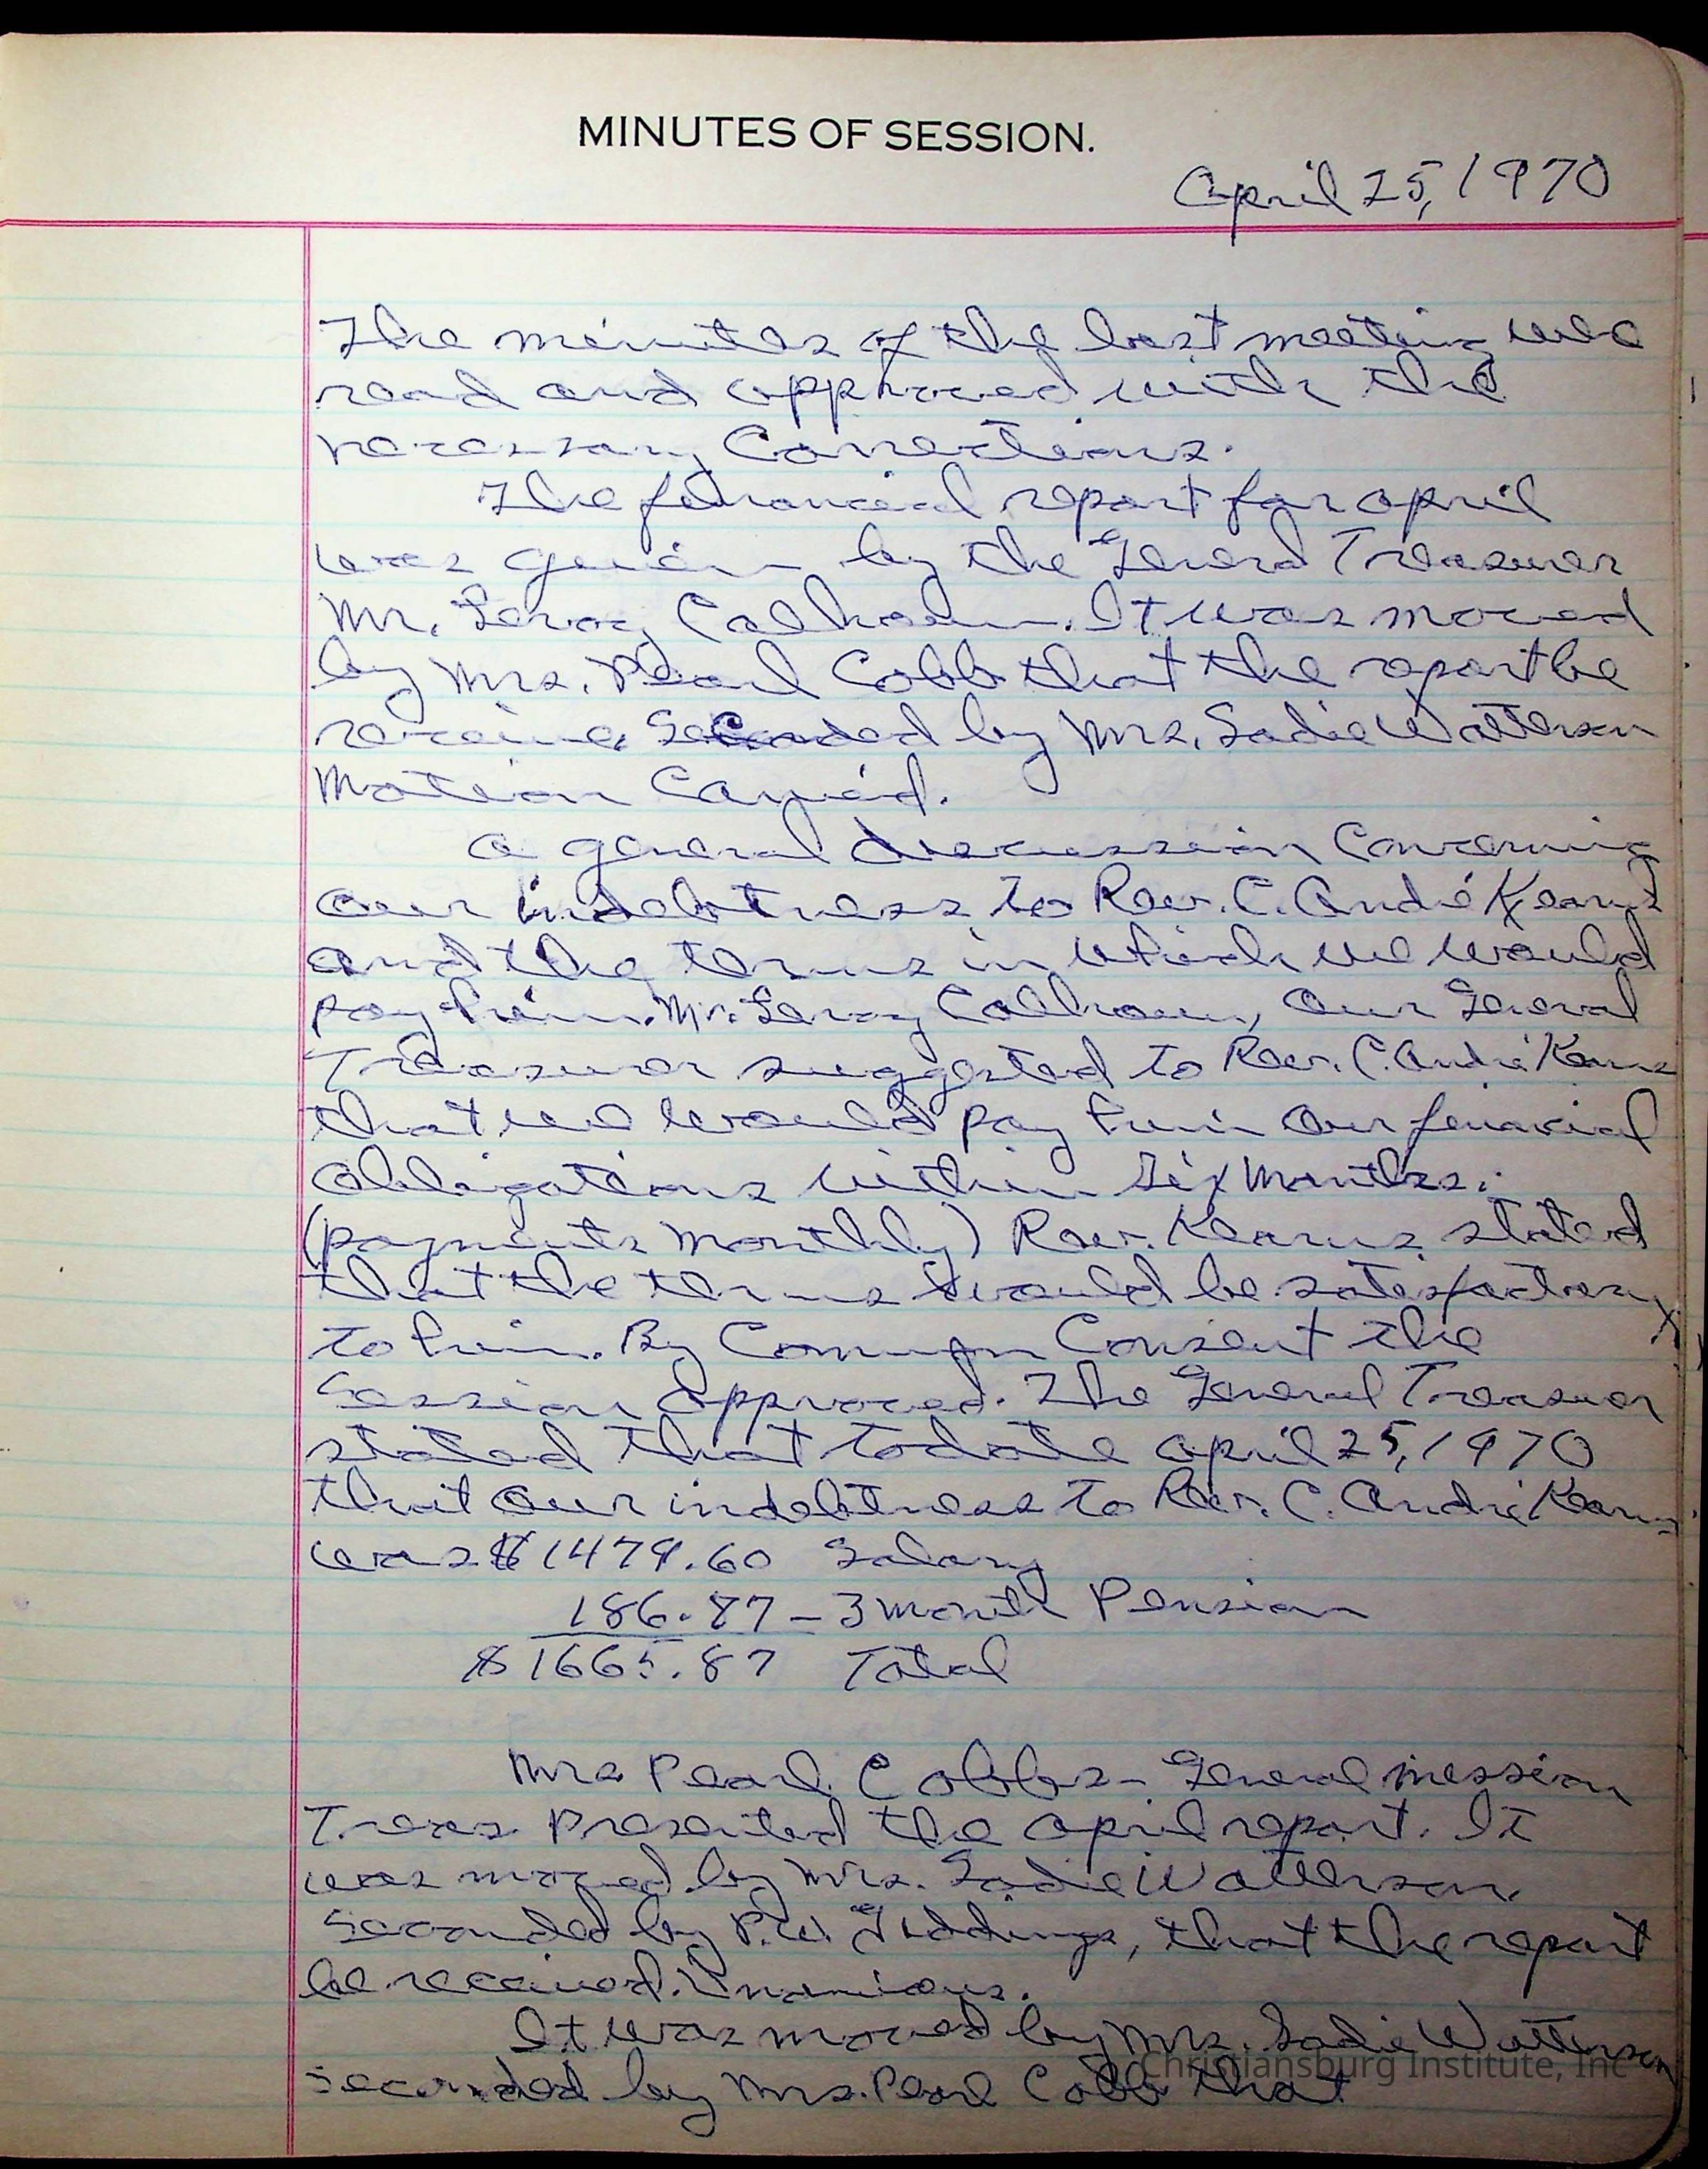 MINUTES OF SESSION.
April 25, 1970
The minutes of the last meeting was
read and approved with the
necessary Corrections.
The financial report for April
was given by the General Treasurer
Mr. Leroy Calhoun. It was moved
by Mrs. Pearl Cobb that the report be
receive. Seconded by Mrs. Sadie Watterson
Motion Carried.
A general discussion Concerning
our indebtness to Rev. C. André Kearns
and the terms in which we would
pay him. Mr. Leroy Calhoun, Our General
Treasurer suggested to Rev. C. André Kearns
that we would pay him Our financial
obligations within Six Months.
(payments monthly) Rev. Kearns stated
that the terms would be satisfactory
to him. By Common Consent the
Session Approved. The General Treasurer
stated that to date April 25, 1970
that Our indebtness to Rev. C. André Kearns
was $1479.60 Salary
186.27 – 3 month Pension
$1665.87 Total
Mrs Pearl Cobbs – General Mission
Treas. Presented the April report. It
was moved by Mrs. Sadie Watterson
Seconded by P.W. Giddings, that the report
be received. Unanimous.
It was moved by Mrs. Sadie Watterson
seconded by Mrs. Pearl Cobb that
Christiansburg Institute, Inc